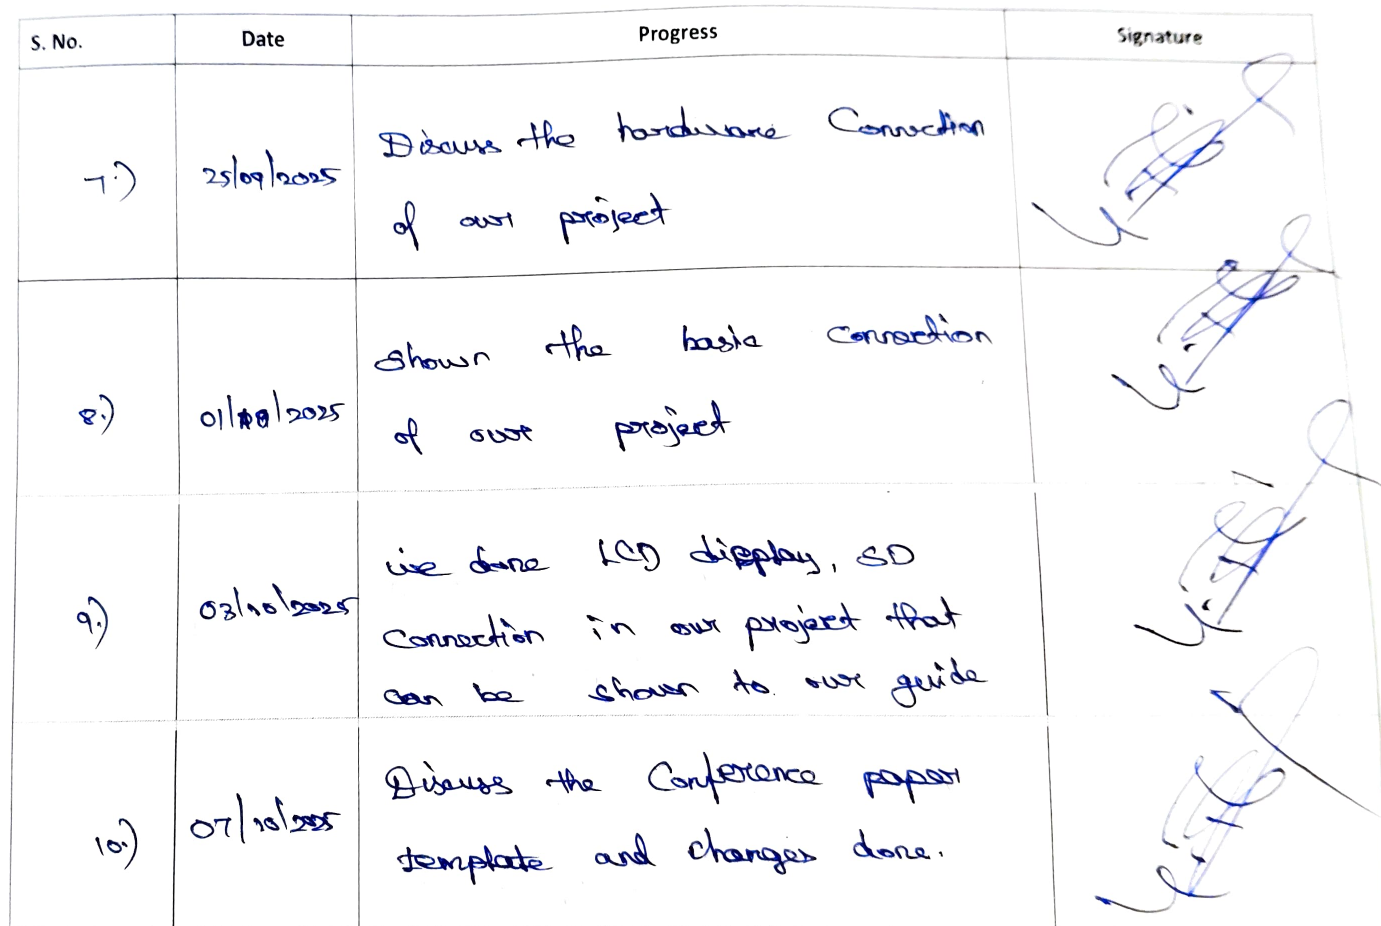 S. No. Date Progress Signature
7.) 25/09/2025 Discuss the hardware Connection
of our project
8.) 01/10/2025 shown the basic connection
of our project
9.) 03/10/2025 we done LCD display, SD
Connection in our project that
can be shown to our guide
10.) 07/10/2025 Discuss the Conference paper
template and changes done.